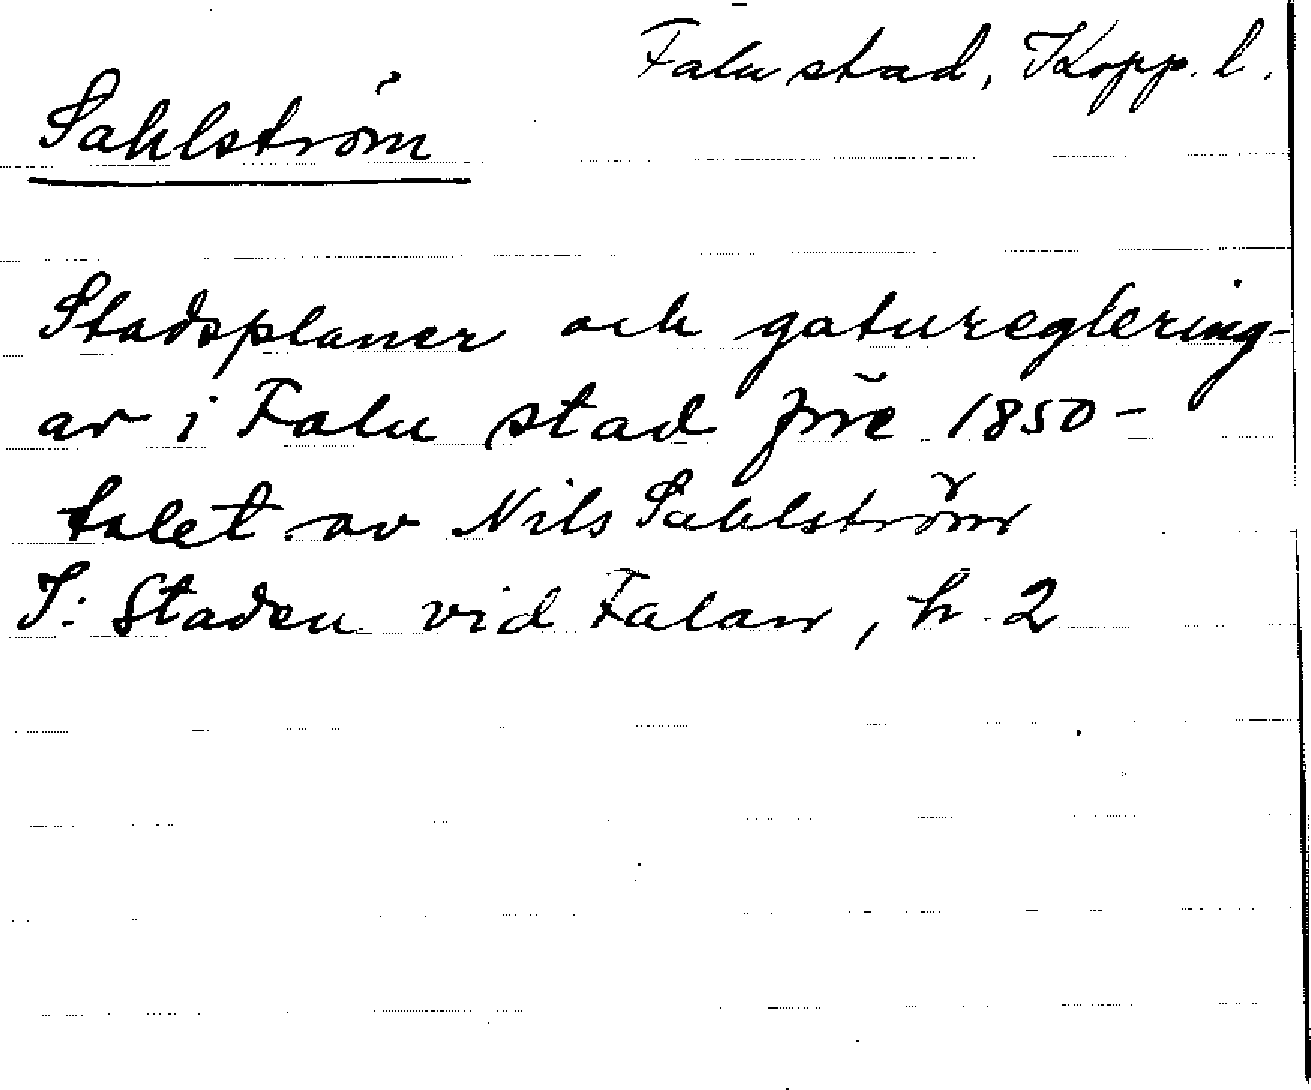 Falu stad, Kopp. l.
Sahlström
Stadsplaner och gatureglering-
ar i Falu stad före 1850-
talet av Nils Sahlström
I: Staden vid Falan, h. 2